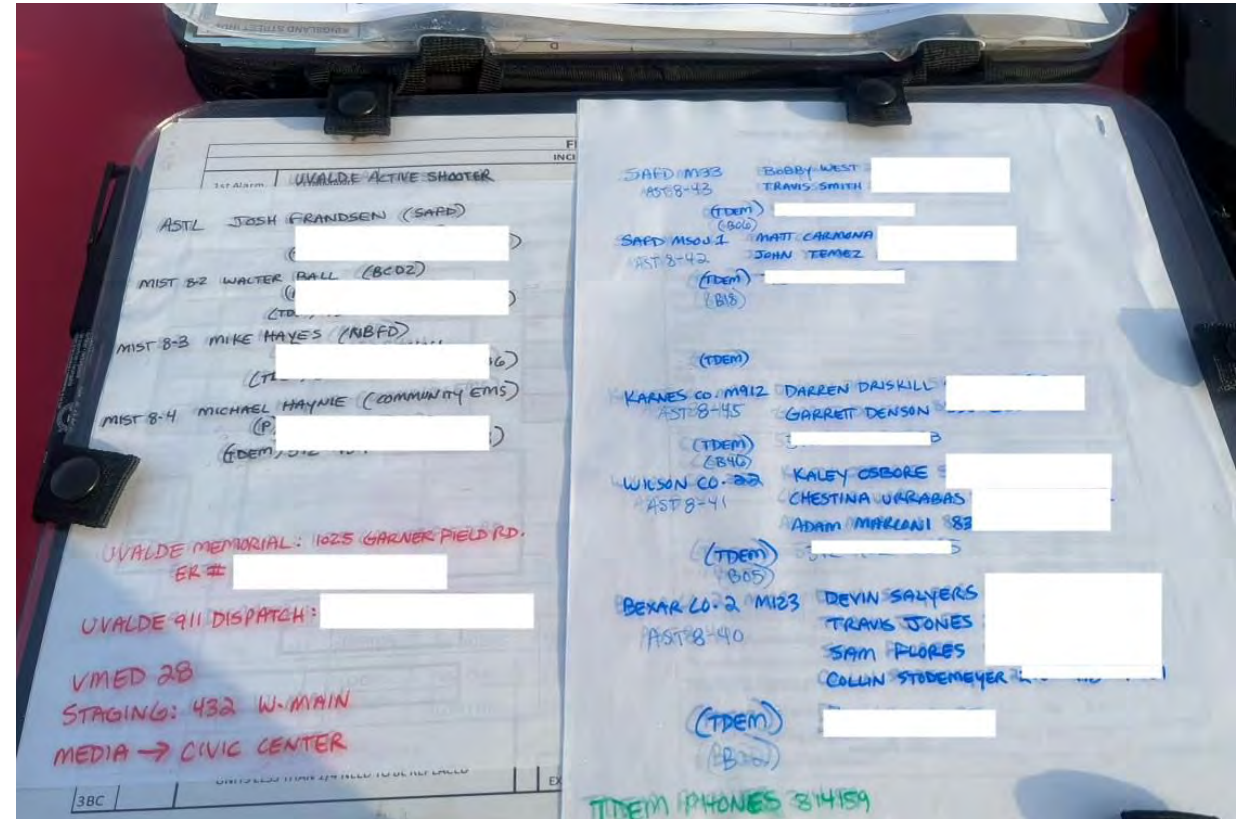 KINGSLAND STREET
D
INCI
1st Alarm
UVALDE ACTIVE SHOOTER
ASTL JOSH FRANDSEN (SAFD)
MIST 8-2 WALTER BALL (BCD2)
MIST 8-3 MIKE HAYES (NBFD)
MIST 8-4 MICHAEL HAYNIE (COMMUNITY EMS)
(P)
(TDEM)
UVALDE MEMORIAL: 1025 GARNER FIELD RD.
ER #
UVALDE 911 DISPATCH:
VMED 28
STAGING: 432 W. MAIN
MEDIA → CIVIC CENTER
UNITS LESS THAN 1/4 NEED TO BE REPLACED
3BC
EX
SAFD M33 BOBBY WEST
AST 8-43 TRAVIS SMITH
(TDEM)
(B06)
SAFD MSOU 1 MATT CARMONA
AST 8-42 JOHN TEMEZ
(TDEM)
(B18)
(TDEM)
KARNES CO. M912 DARREN DRISKILL
AST 8-45 GARRETT DENSON
(TDEM)
(B46)
WILSON CO. 22 KALEY OSBORE
AST 8-41 CHESTINA URRABAS
ADAM MARCONI 83
(TDEM)
(B05)
BEXAR CO. 2 M123 DEVIN SALYERS
AST 8-40 TRAVIS JONES
SAM FLORES
COLLIN STODEMEYER
(TDEM)
TDEM PHONES 814159